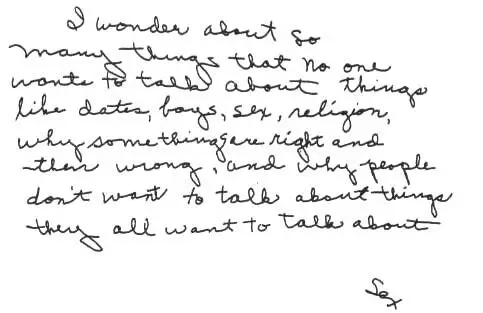 I wonder about so
many things that no one
wants to talk about things
like dates, boys, sex, religion,
why some things are right and
then wrong, and why people
don't want to talk about things
they all want to talk about
Sex